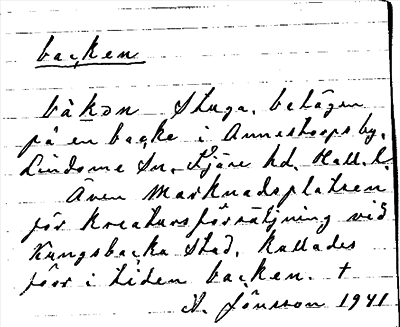 backen
båkən Stuga, belägen
på en backe i Annestorps by,
Lindome Sn. Fjäre hd. Hall. l.
Även Marknadsplatsen
för kreatursförsäljning vid
Kungsbacka Stad, kallades
förr i tiden backen. +
A. Jönsson 1941